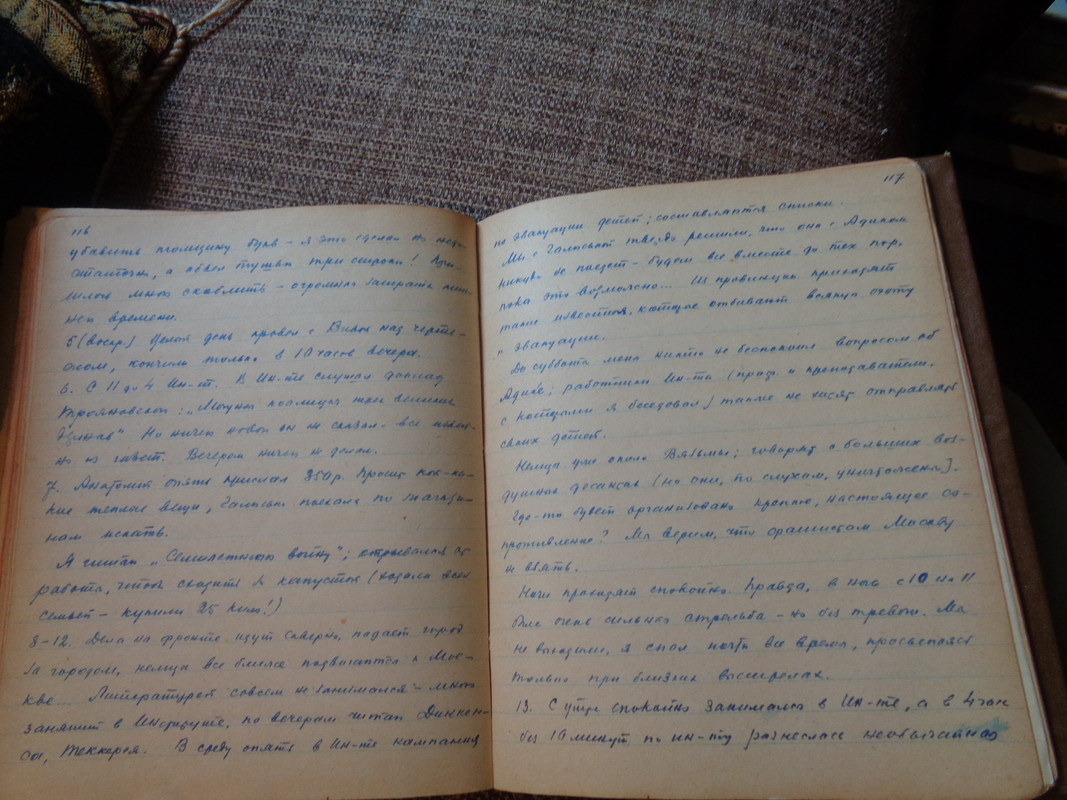 116
убавить толщину букв - я это сделал но недо-
статочно, а обвел тушью три строки! При-
шлось мног скоблить - огромная затрата лиш-
ней времени.
5 (воскр) Целый день провел с Вивой над черте-
жом, кончили только в 10 часов вечера.
6. С 11 до 4 Ин-т. В Ин-те слушал доклад
Трояновского: „Мощная коалиция трех великих
держав". Но ничего нового он не сказал - все извест-
но из газет. Вечером ничего не делал.
7. Анатолий опять прислал 350 р. Просит кой-ка-
кие теплые вещи, Галюська поехала по магази-
нам искать.
Я читал „Семилетнюю войну"; отрывался от
работы, чтобы сходить за капустой (ходили всей
семьей - купили 25 кил!)
8-12. Дела на фронте идут скверно, падает город
за городом, немцы все ближе подвигаются к Мос-
кве... Литературой совсем не занимался - много
занятий в Институте, по вечерам читал Диккен-
са, Теккерея. В среду опять в Ин-те кампания
117
по эвакуации детей; составляются списки.
Мы с Галюськой твердо решили, что она с Адиком
никуда не поедет - будем все вместе до тех пор,
пока это возможно... Из провинции приходят
такие известия, которые отбивают всякую охоту
к эвакуации.
До субботы меня никто не беспокоил вопросом об
Адике; работники Ин-та (проф. и преподаватели,
с которыми я беседовал) также не хотят отправлять
своих детей.
Немцы уже около Вязьмы; говорят о больших воз-
душных десантах (но они, по слухам, уничтожены).
Где-то будет организовано крепкое, настоящее со-
противление? Мы верим, что фашистам Москвы
не взять.
Ночи проходят спокойно. Правда, в ночь с 10 на 11
была очень сильная стрельба - но без тревоги. Мы
не выходили, я спал почти все время, просыпаясь
только при близких выстрелах.
13. С утра спокойно занимался в Ин-те, а в 4 час
без 10 минут по ин-ту разнеслась необычайная